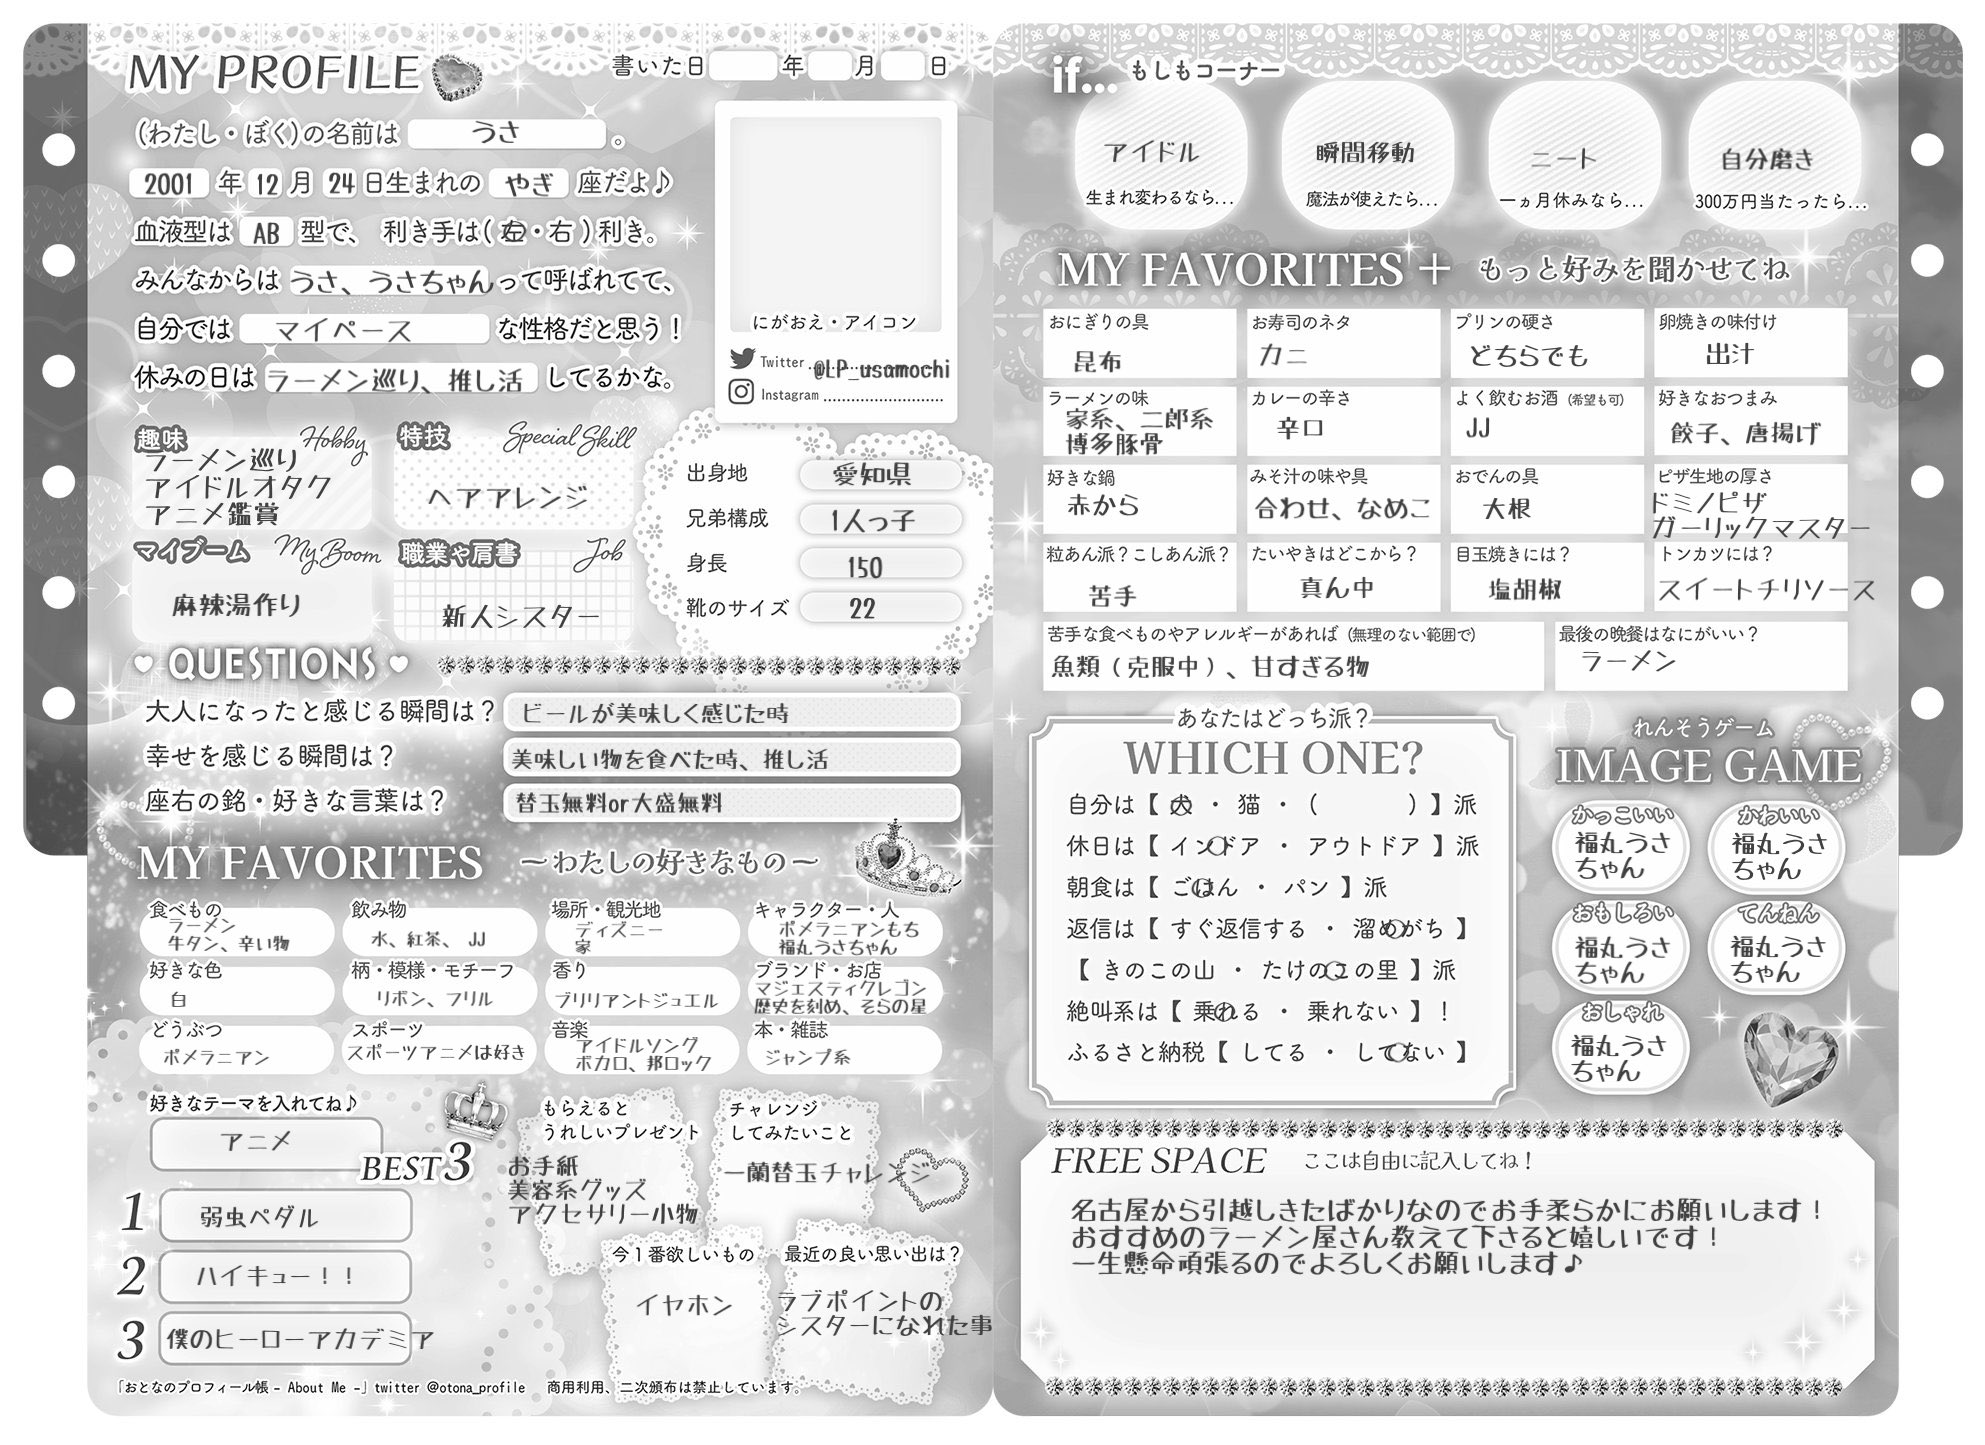 MY PROFILE
書いた日 年 月 日
(わたし・ぼく)の名前は うさ 。
2001 年 12 月 24 日生まれの やぎ 座だよ♪
血液型は AB 型で、 利き手は( 左・右 )利き。
みんなからは うさ、うさちゃん って呼ばれてて、
自分では マイペース な性格だと思う！
休みの日は ラーメン巡り、推し活 してるかな。
にがおえ・アイコン
Twitter @LP_usamochi
Instagram
趣味 Hobby
ラーメン巡り
アイドルオタク
アニメ鑑賞
特技 Special Skill
ヘアアレンジ
マイブーム My Boom
麻辣湯作り
職業や肩書 Job
新人シスター
出身地 愛知県
兄弟構成 1人っ子
身長 150
靴のサイズ 22
QUESTIONS
大人になったと感じる瞬間は？ ビールが美味しく感じた時
幸せを感じる瞬間は？ 美味しい物を食べた時、推し活
座右の銘・好きな言葉は？ 替玉無料or大盛無料
MY FAVORITES ～わたしの好きなもの～
食べもの
ラーメン
牛タン、辛い物
飲み物
水、紅茶、 JJ
場所・観光地
ディズニー
家
キャラクター・人
ポメラニアンもち
福丸うさちゃん
好きな色
白
柄・模様・モチーフ
リボン、フリル
香り
ブリリアントジュエル
ブランド・お店
マジェスティクレゴン
歴史を刻め、そらの星
どうぶつ
ポメラニアン
スポーツ
スポーツアニメは好き
音楽
アイドルソング
ボカロ、邦ロック
本・雑誌
ジャンプ系
好きなテーマを入れてね♪
アニメ
BEST3
1 弱虫ペダル
2 ハイキュー！！
3 僕のヒーローアカデミア
もらえると
うれしいプレゼント
お手紙
美容系グッズ
アクセサリー小物
チャレンジ
してみたいこと
一蘭替玉チャレンジ
今1番欲しいもの
イヤホン
最近の良い思い出は？
ラブポイントの
シスターになれた事
「おとなのプロフィール帳 - About Me -」twitter @otona_profile 商用利用、二次頒布は禁止しています。
if... もしもコーナー
アイドル
生まれ変わるなら...
瞬間移動
魔法が使えたら...
ニート
一ヵ月休みなら...
自分磨き
300万円当たったら...
MY FAVORITES＋ もっと好みを聞かせてね
おにぎりの具
昆布
お寿司のネタ
カニ
プリンの硬さ
どちらでも
卵焼きの味付け
出汁
ラーメンの味
家系、二郎系
博多豚骨
カレーの辛さ
辛口
よく飲むお酒 (希望も可)
JJ
好きなおつまみ
餃子、唐揚げ
好きな鍋
赤から
みそ汁の味や具
合わせ、なめこ
おでんの具
大根
ピザ生地の厚さ
ドミノピザ
ガーリックマスター
粒あん派？こしあん派？
苦手
たいやきはどこから？
真ん中
目玉焼きには？
塩胡椒
トンカツには？
スイートチリソース
苦手な食べものやアレルギーがあれば (無理のない範囲で)
魚類（克服中）、甘すぎる物
最後の晩餐はなにがいい？
ラーメン
あなたはどっち派？
WHICH ONE?
自分は【 犬 ・ 猫 ・ ( ) 】派
休日は【 インドア ・ アウトドア 】派
朝食は【 ごはん ・ パン 】派
返信は【 すぐ返信する ・ 溜めがち 】
【 きのこの山 ・ たけのこの里 】派
絶叫系は【 乗れる ・ 乗れない 】！
ふるさと納税【 してる ・ してない 】
れんそうゲーム
IMAGE GAME
かっこいい
福丸うさ
ちゃん
かわいい
福丸うさ
ちゃん
おもしろい
福丸うさ
ちゃん
てんねん
福丸うさ
ちゃん
おしゃれ
福丸うさ
ちゃん
FREE SPACE ここは自由に記入してね！
名古屋から引越しきたばかりなのでお手柔らかにお願いします！
おすすめのラーメン屋さん教えて下さると嬉しいです！
一生懸命頑張るのでよろしくお願いします♪